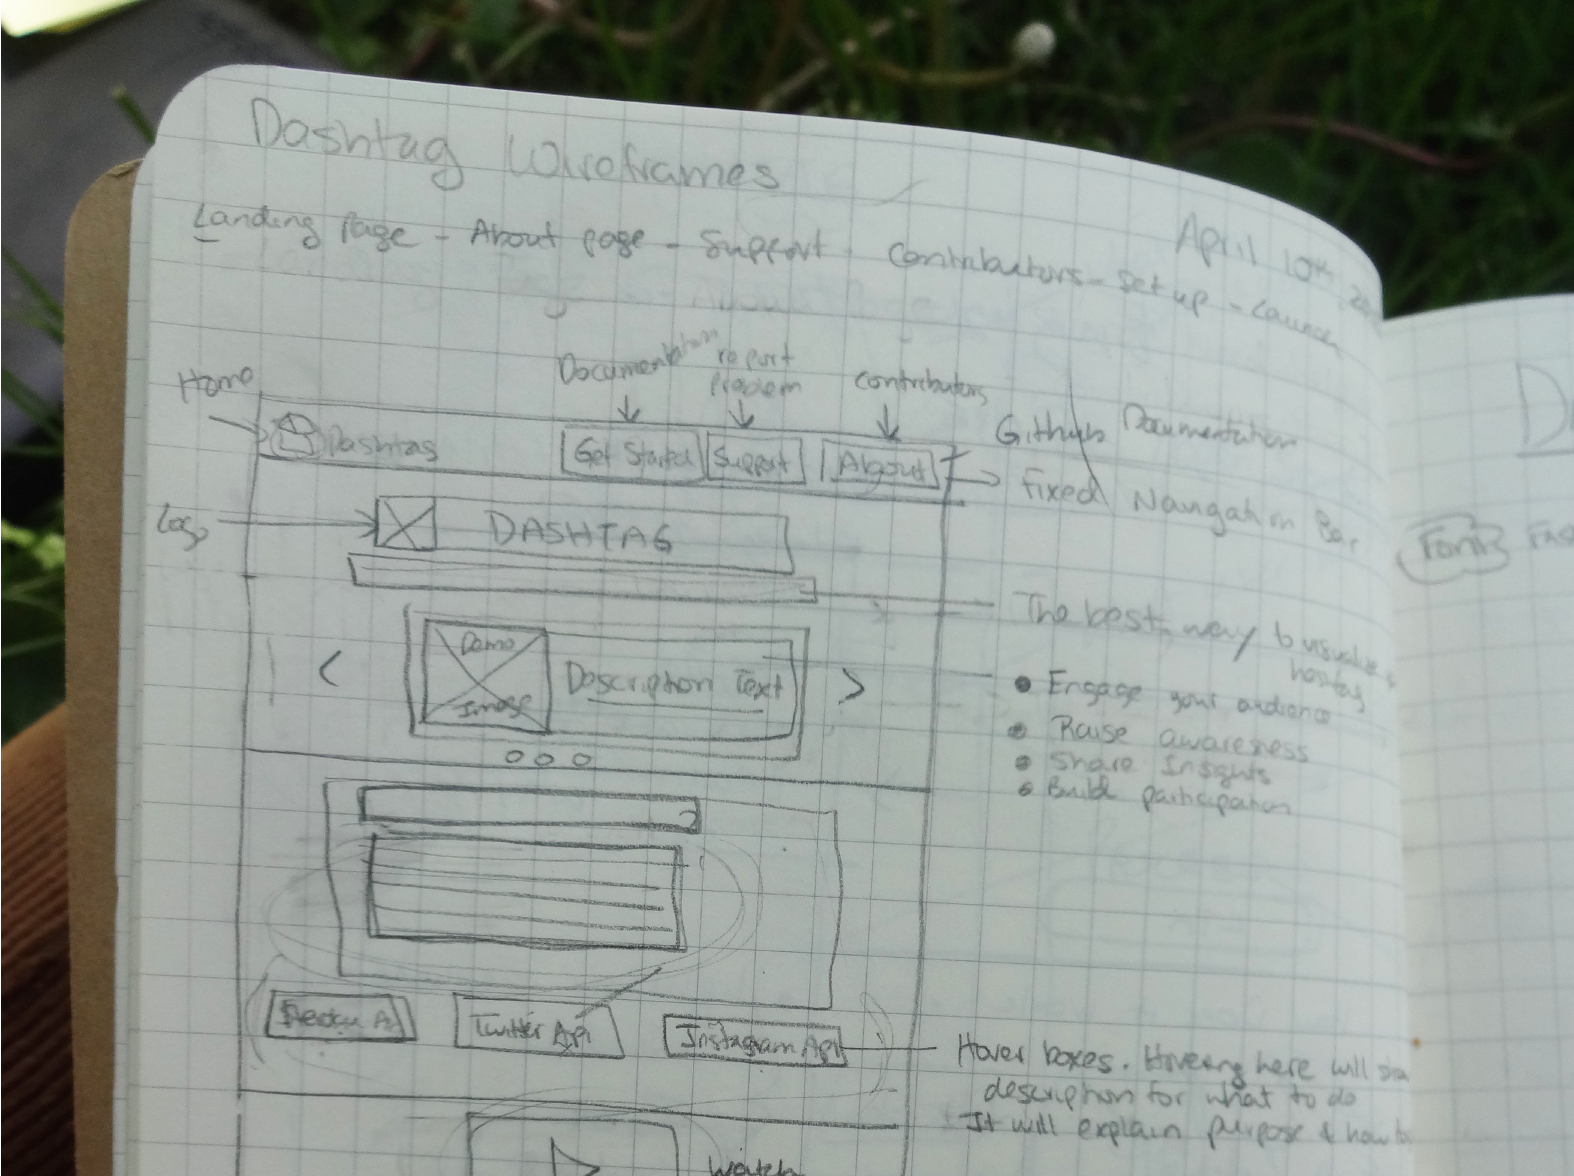 Dashtag Wireframes
April 10th
Landing Page - About page - Support Contributors - Set up - Launch
Documentation report problem contributors
Home
Dashtag Get Started Support About
Github Documentation
Fixed Navigation Bar
Logo DASHTAG
The best way to visualize
hashtag
Demo Image
Description Text
< >
• Engage your audience
• Raise awareness
• Share Insights
• Build participation
Twitter Api Instagram Api
Hover boxes. Hovering here will show
description for what to do
It will explain purpose & how to
Watch
Fonts